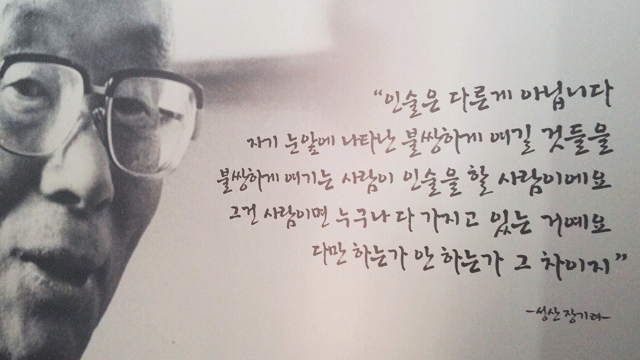 “인술은 다른게 아닙니다
자기 눈앞에 나타난 불쌍하게 여길 것들을
불쌍하게 여기는 사람이 인술을 할 사람이에요
그건 사람이면 누구나 다 가지고 있는 거예요
다만 하는가 안 하는가 그 차이지”
-성산 장기려-